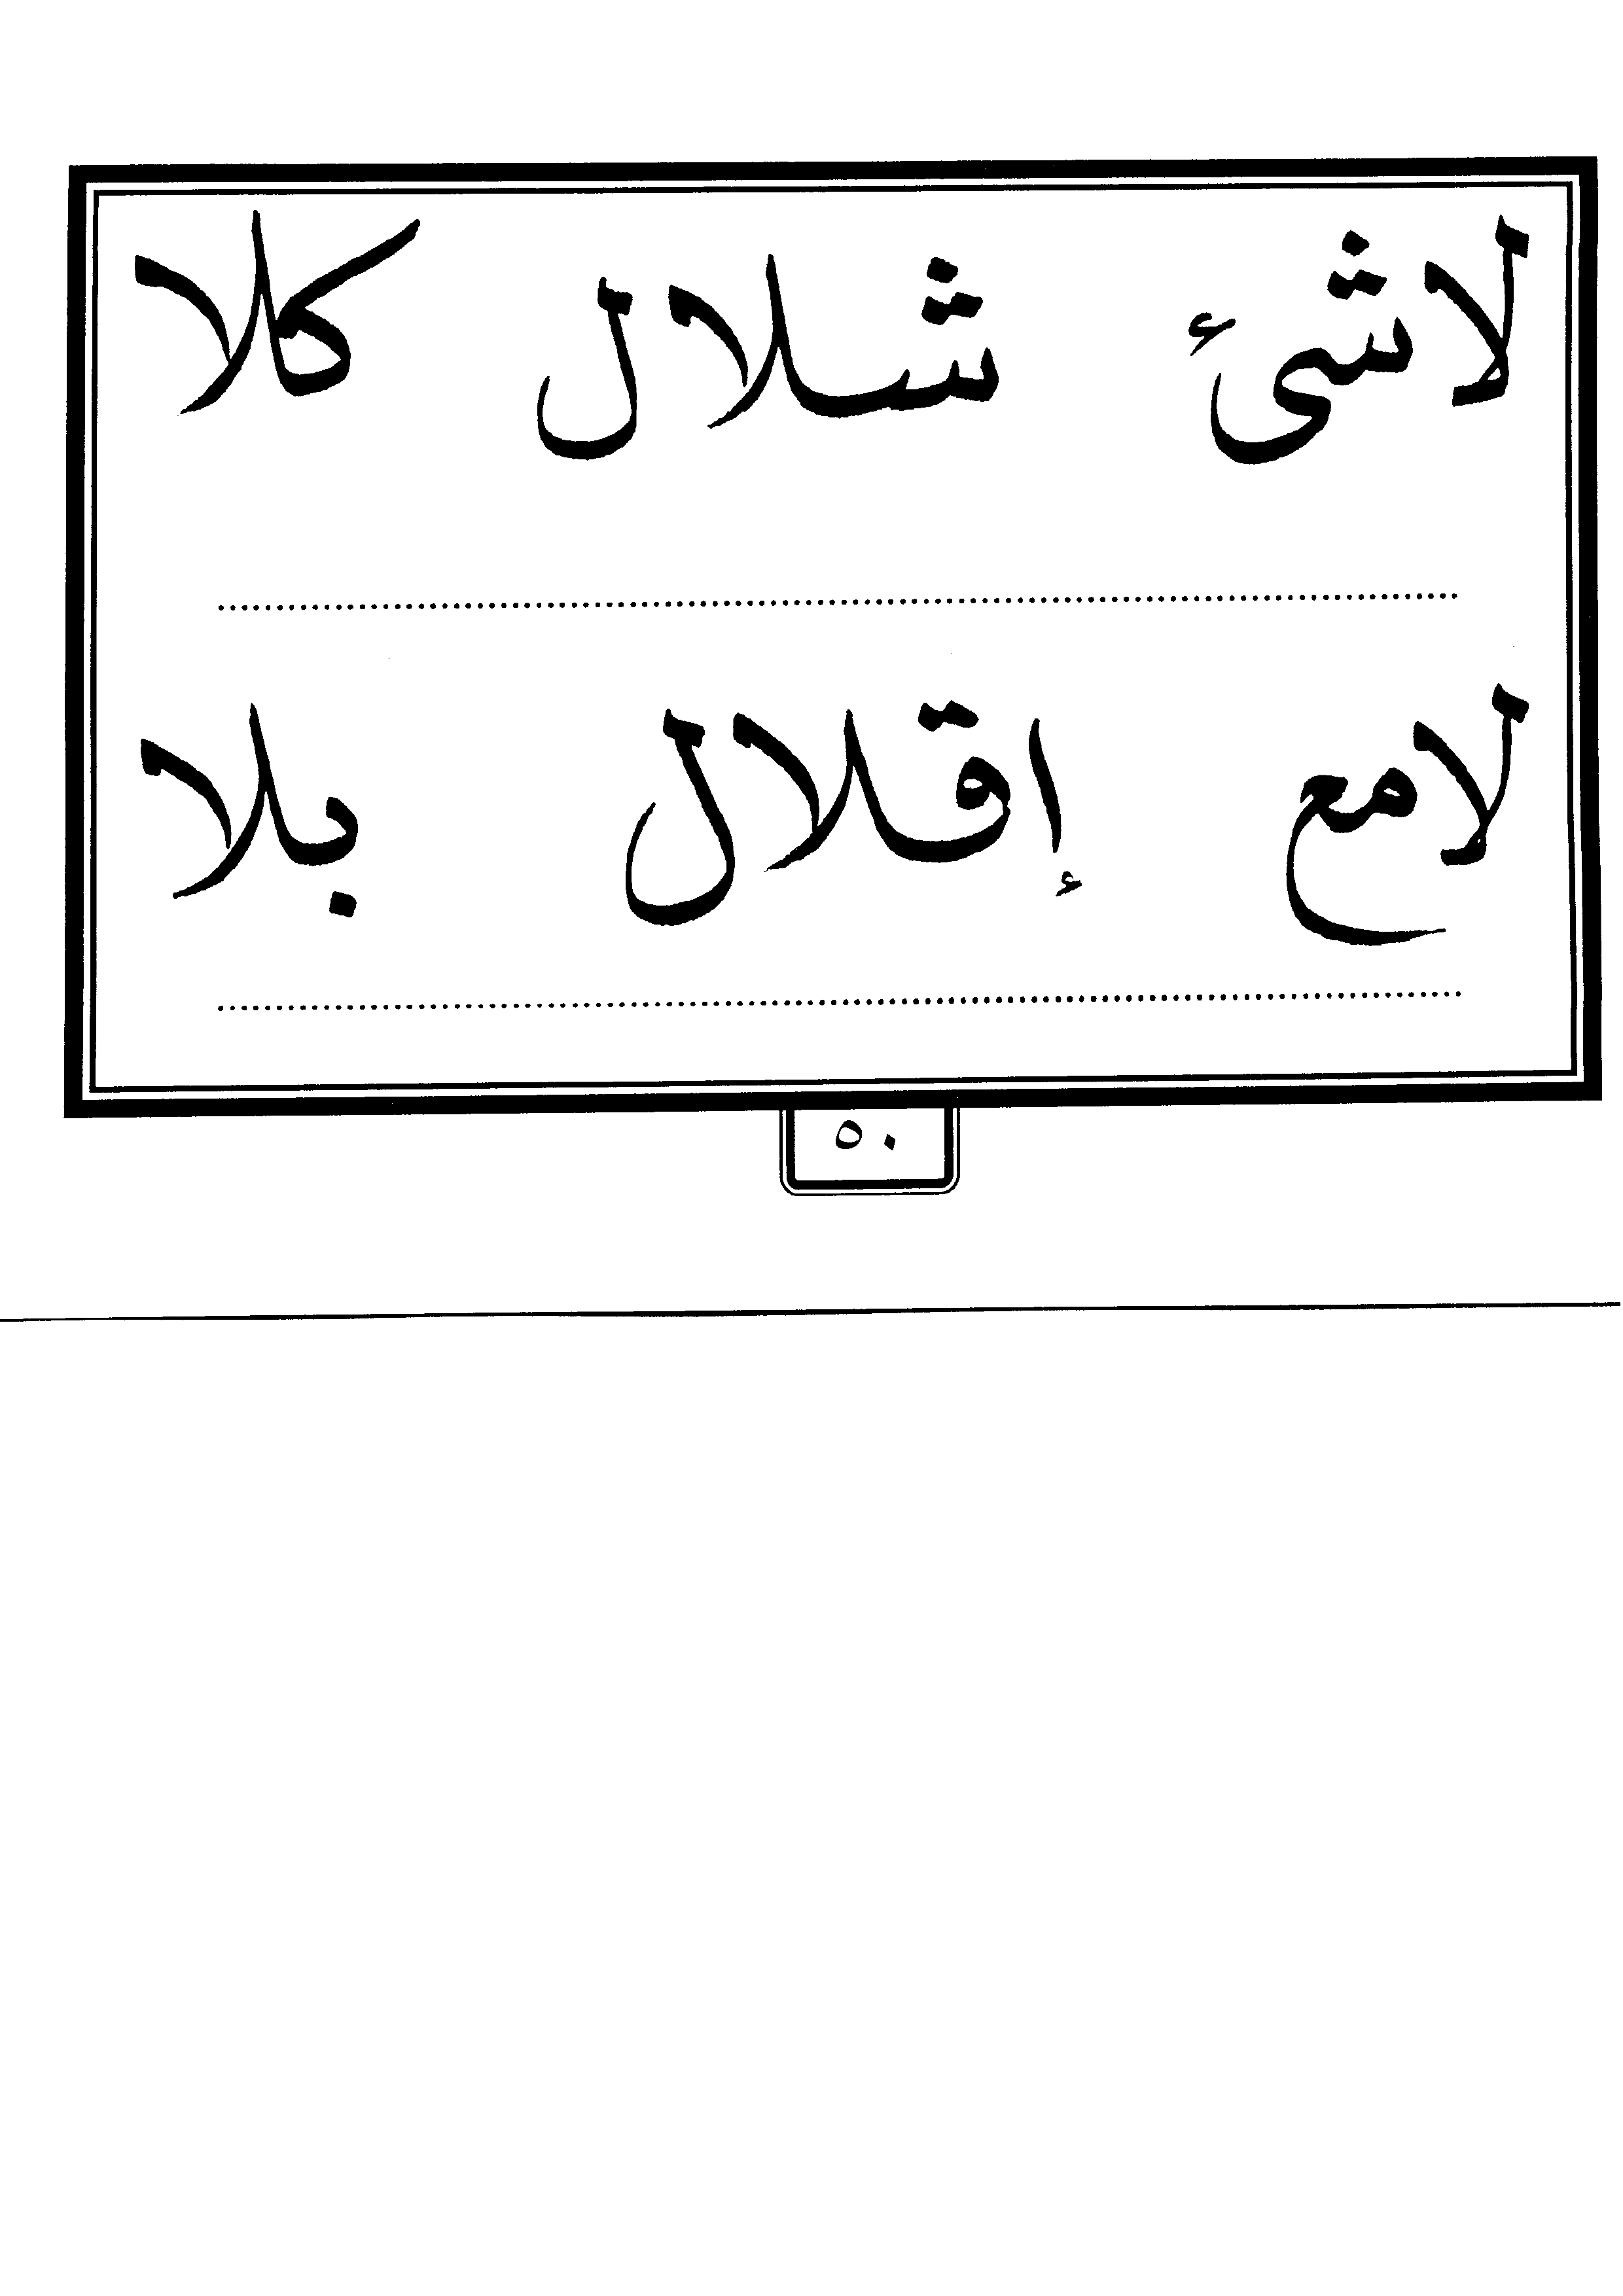 لاشئ شلال كلا
لامع إقلال بلا
٥٠